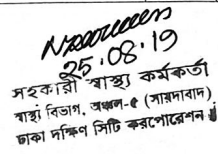 25.08.19
সহকারী স্বাস্থ্য কর্মকর্তা
স্বাস্থ্য বিভাগ, অঞ্চল-৫ (সায়দাবাদ)
ঢাকা দক্ষিণ সিটি করপোরেশন।